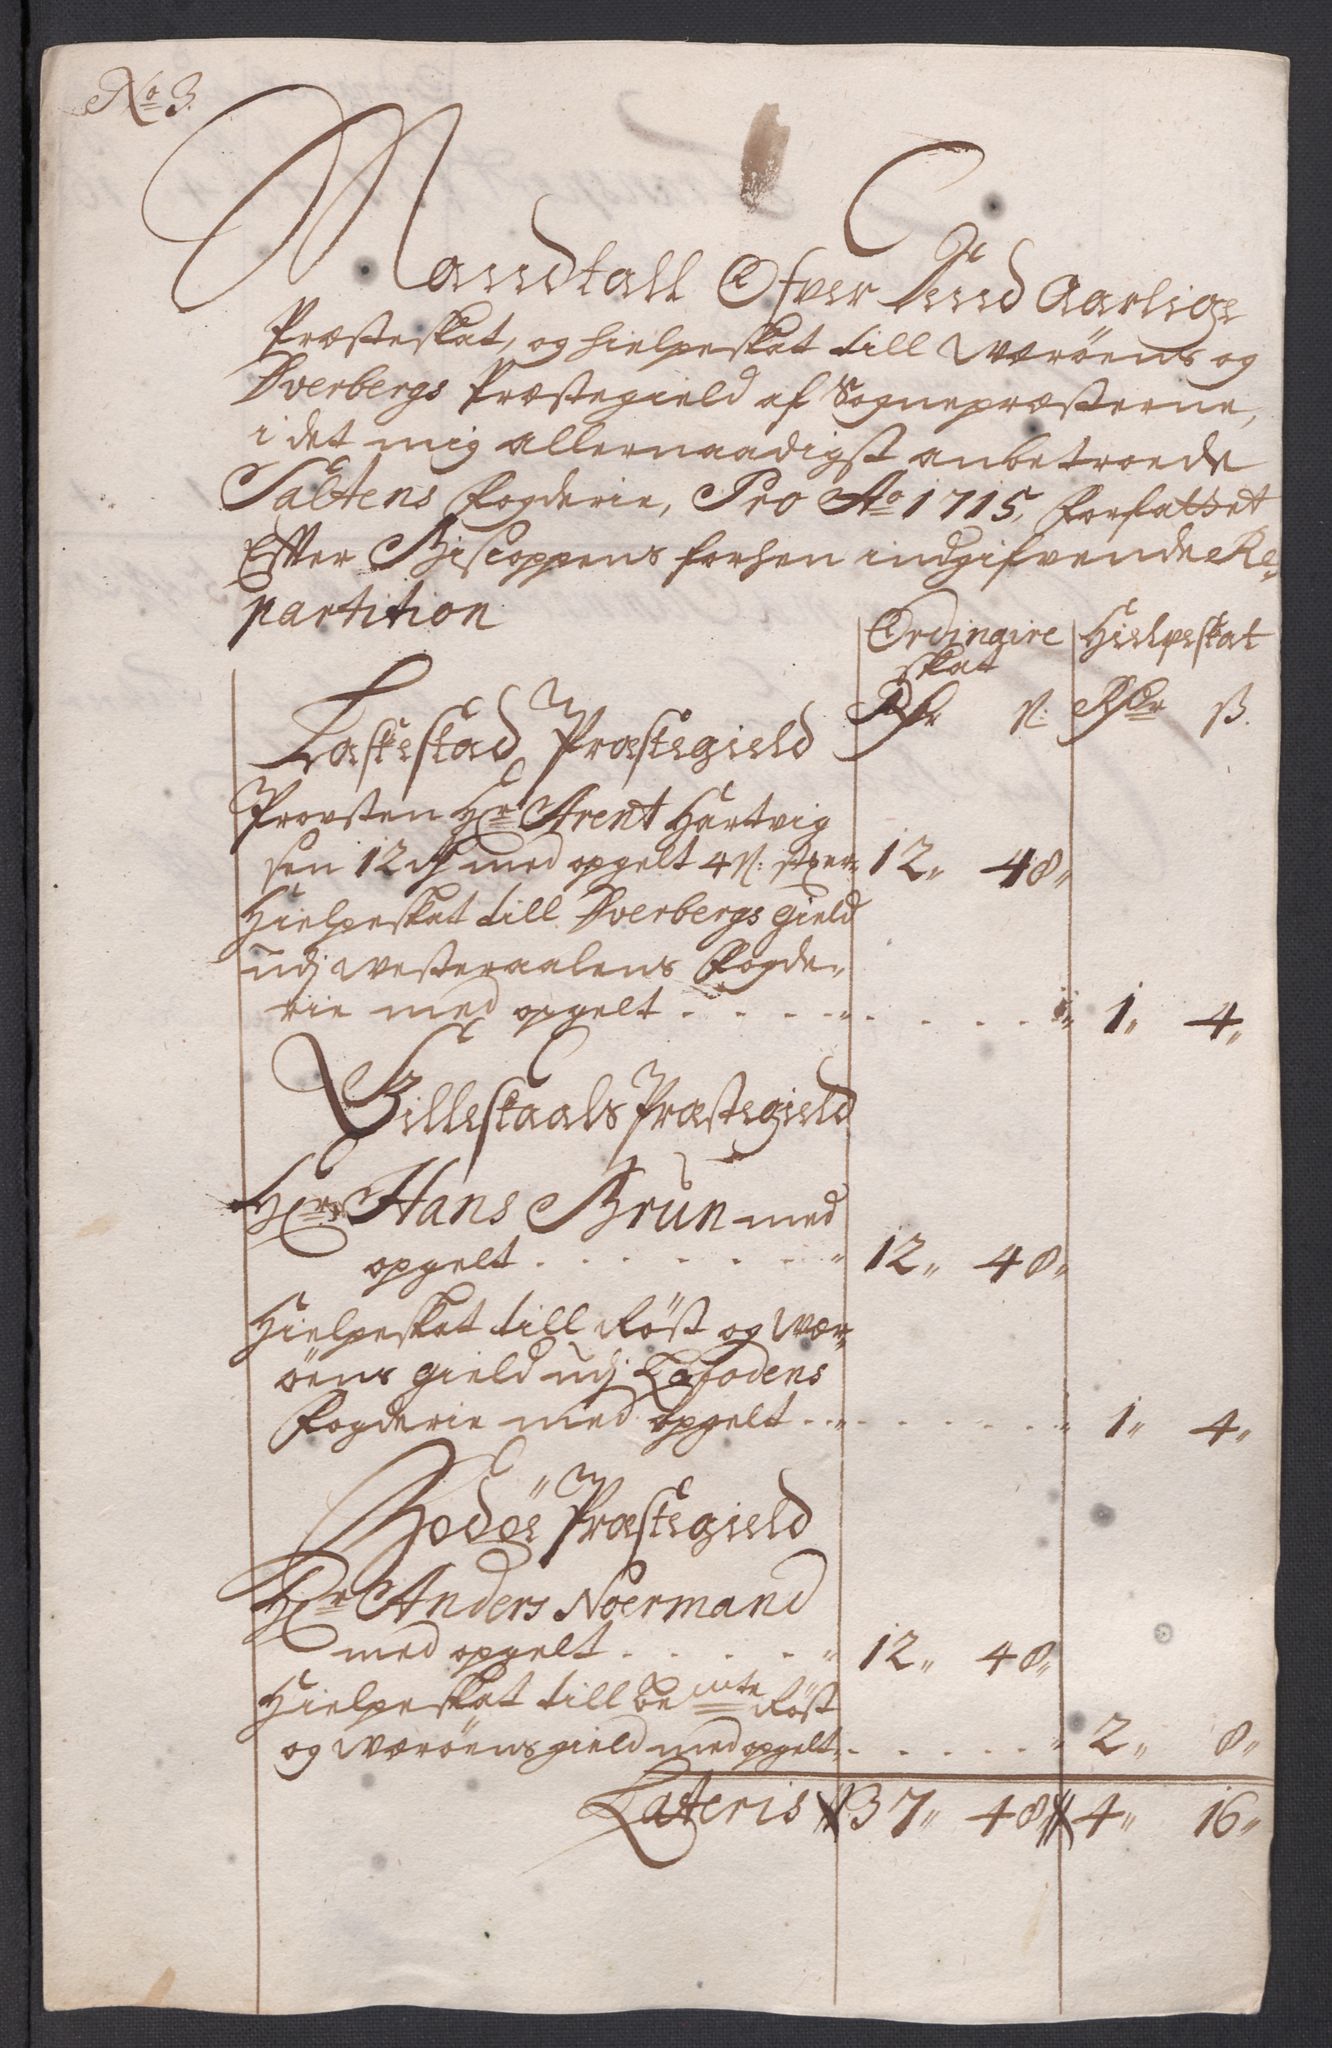 No 3.
Mandtall Ofver Dend Aarlige
Præsteskat, og hielpeskat till Værøens og
Øverbergs Præstegield af Sognepræsterne,
i det mig allernaadigst anbetroede
Saltens fogderie, Pro Ao 1715, forfattet
Effter Biscoppens forhen indgifvende Re-
partition
Ordingire Hielpeskat
skat
Rdr ß: Rdr ß.
Laskestad Præstegield
Provsten Hr Arent Hartvig
sen 12 rd med opgelt 4 ß: 12,, 48,,
Hielpeskat till Øverbergs gield
udj Westeraalens Fogde-
rie med opgelt . . . . . . . . 1,, 4,,
Gilleskaals Præstegield
Hr Hans Brun med
opgelt . . . . . . 12,, 48,,
Hielpeskat till Røst og Vær-
øens gield udj Lofodens
fogderie med opgelt . . . . . . 1,, 4,,
Bodøe Præstegield
Hr Anders Noermand
med opgelt . . . . . 12,, 48,,
Hielpeskat till bemte Røst
og Værøens gield med opgelt . . . . . 2,, 8,,
Lateris 37,, 48,, 4,, 16,,